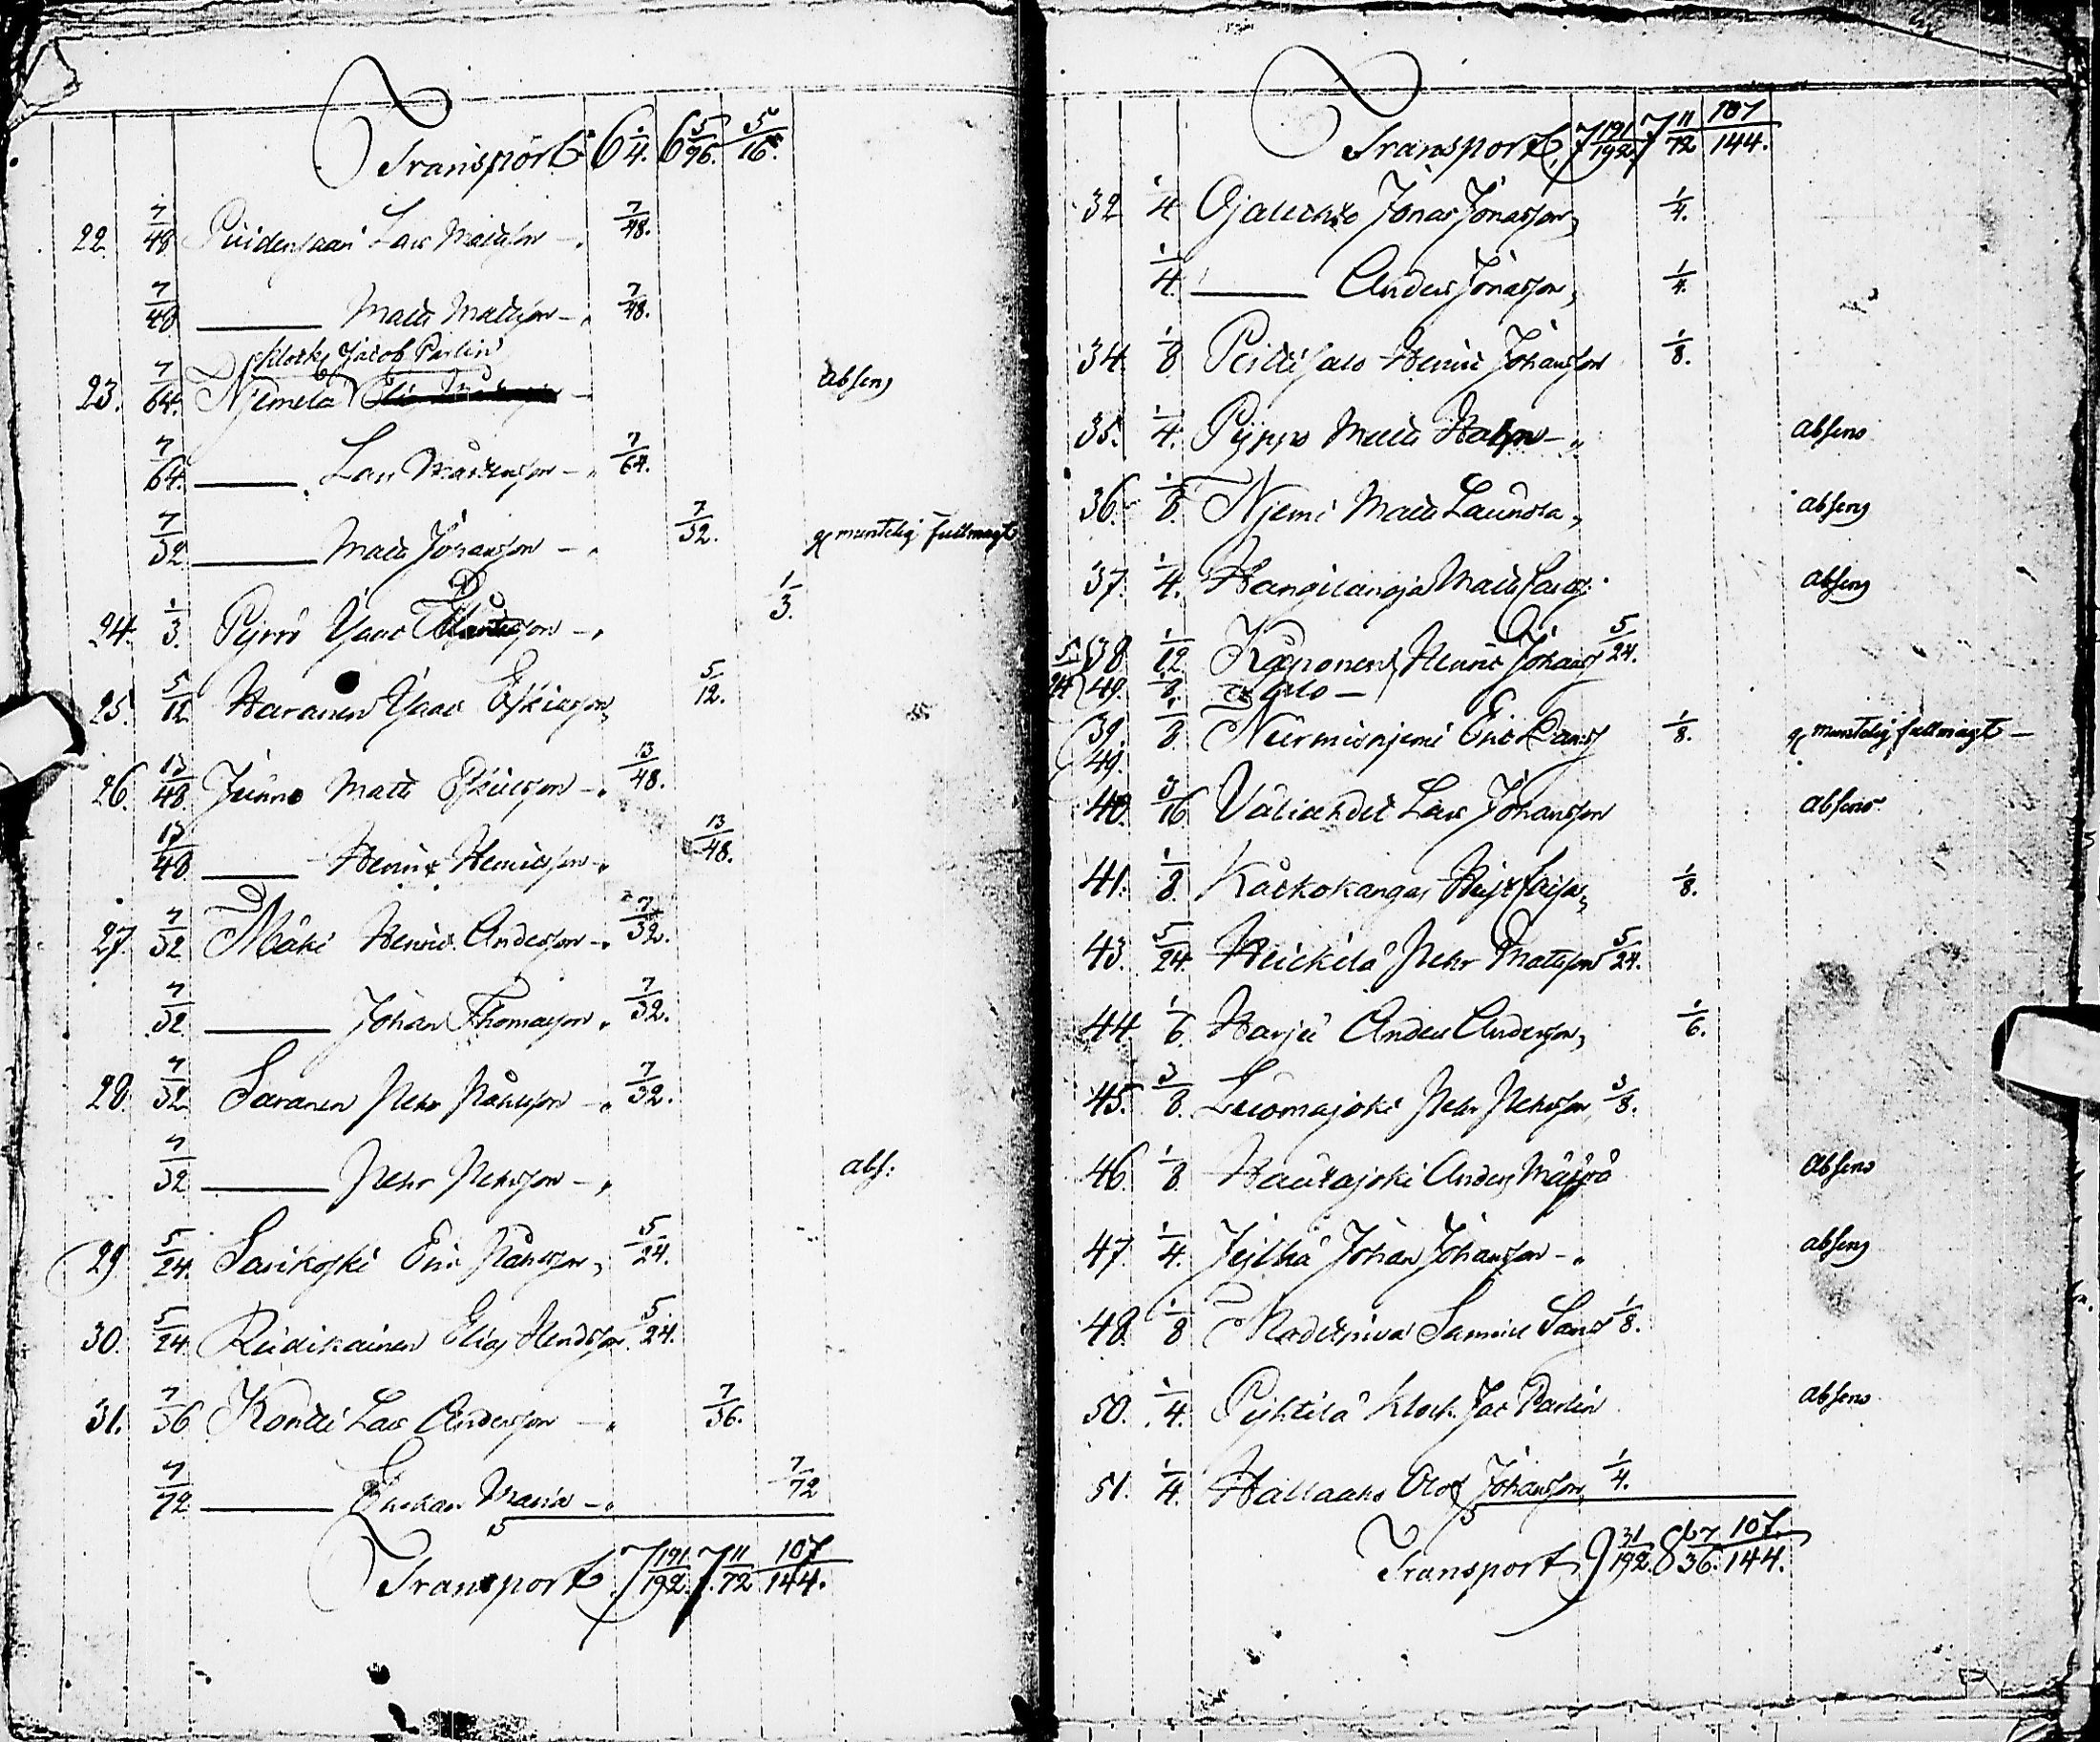 Transport 6 1/4. 6 5/96. 5/16.
22. 7/48 Puidensaari Lars Matsson - 7/48.
7/48 ——— Matts Mattsson - 7/48.
Klock Jacob Parlin
23. 7/64. Njemelä - absens
7/64. ——— Lars Mårtensson - 7/64.
7/32 ——— Matts Johansson - 7/32. g muntelig fullmagt
24. 1/3. Pyrrö Isaac - 1/3.
25. 5/12 Haranen Isaac Eskilsson 5/12.
26. 13/48 Junno Matts Eskilsson - 13/48.
13/48 ——— Henric Henricsson - 13/48.
27. 7/32 Mäki Henric Andersson - 7/32.
7/32 ——— Johan Thomasson 7/32.
28. 7/32 Saranen Pehr Påhlsson - 7/32.
7/32 ——— Pehr Pehrsson - abs:
29. 5/24. Sarikoski Eric Påhlsson, 5/24.
30. 5/24. Reidikainen Elias Hendsson 5/24.
31. 7/36 Kontti Lars Andersson - 7/36.
7/72 ——— Enckan Maria - 7/72
Transport 7 191/192. 7 11/72 107/144.
Transport, 7 191/192. 7 11/72 107/144.
32 1/4 Ojalehto Jonas Jonasson, 1/4.
1/4. ——— Anders Jonasson, 1/4.
34. 1/8 Perttisalo Henric Johansson 1/8.
35. 1/4. Pyppo Matts - absens
36. 1/8. Njemi Matts Launola, absens
37. 1/4. Hangilangja Matts Larss. absens
5/24 38 1/12 Käpponen, Henric Johanss 5/24.
49. 1/8. - Salo -
39. 1/8. Nurmisnjemi Eric Larss 1/8. g muntelig fullmagt -
49.
40. 3/16 Väliahdet Lars Johansson absens
41. 1/8. Kåckokangas 1/8.
43. 5/24. Heickilä Pehr Matsson 5/24.
44. 1/6. Harju Anders Andersson, 1/6.
45. 3/8. Luomajoki Pehr Pehrsson 3/8.
46. 1/8. Hautajoki Anders Määttä absens
47. 1/4. Jylhä Johan Johansson - absens
48. 1/8 Madetniva Samuel Larss 1/8.
50. 1/4. Pyhtilä Klock. Jac Parlin absens
51. 1/4. Hallaaho Olof Johansson, 1/4.
Transport, 9 31/192. 8 7/36. 107/144.